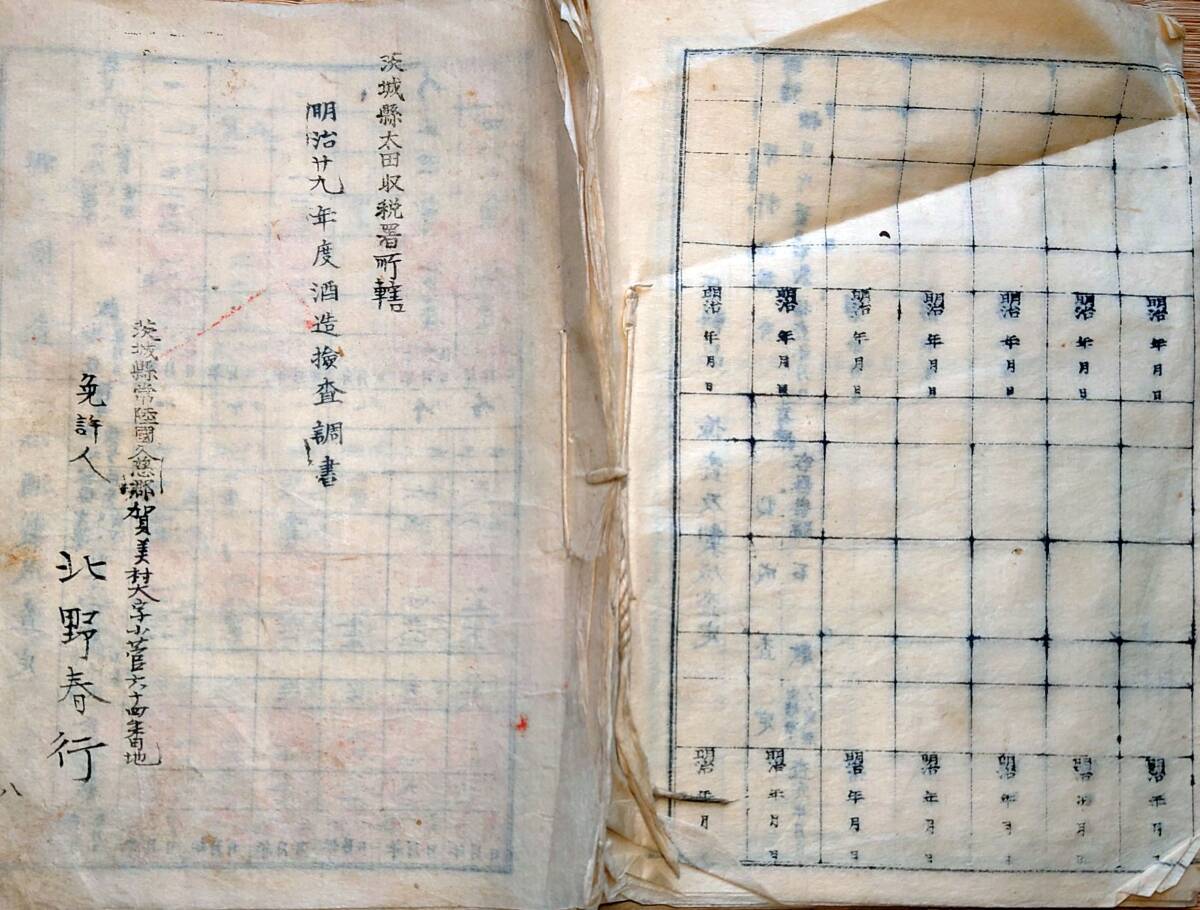 明治 年 月 日
明治 年 月 日
明治 年 月 日
明治 年 月 日
明治 年 月 日
明治 年 月 日
明治 年 月 日
明治 年 月 日
明治 年 月 日
明治 年 月 日
明治 年 月 日
明治 年 月 日
明治 年 月 日
明治 年 月
茨城縣太田収税署所轄
明治廿九年度酒造撿査調書
茨城縣常陸國久慈郡賀美村大字小菅六十四番地
免許人
北野春行
八